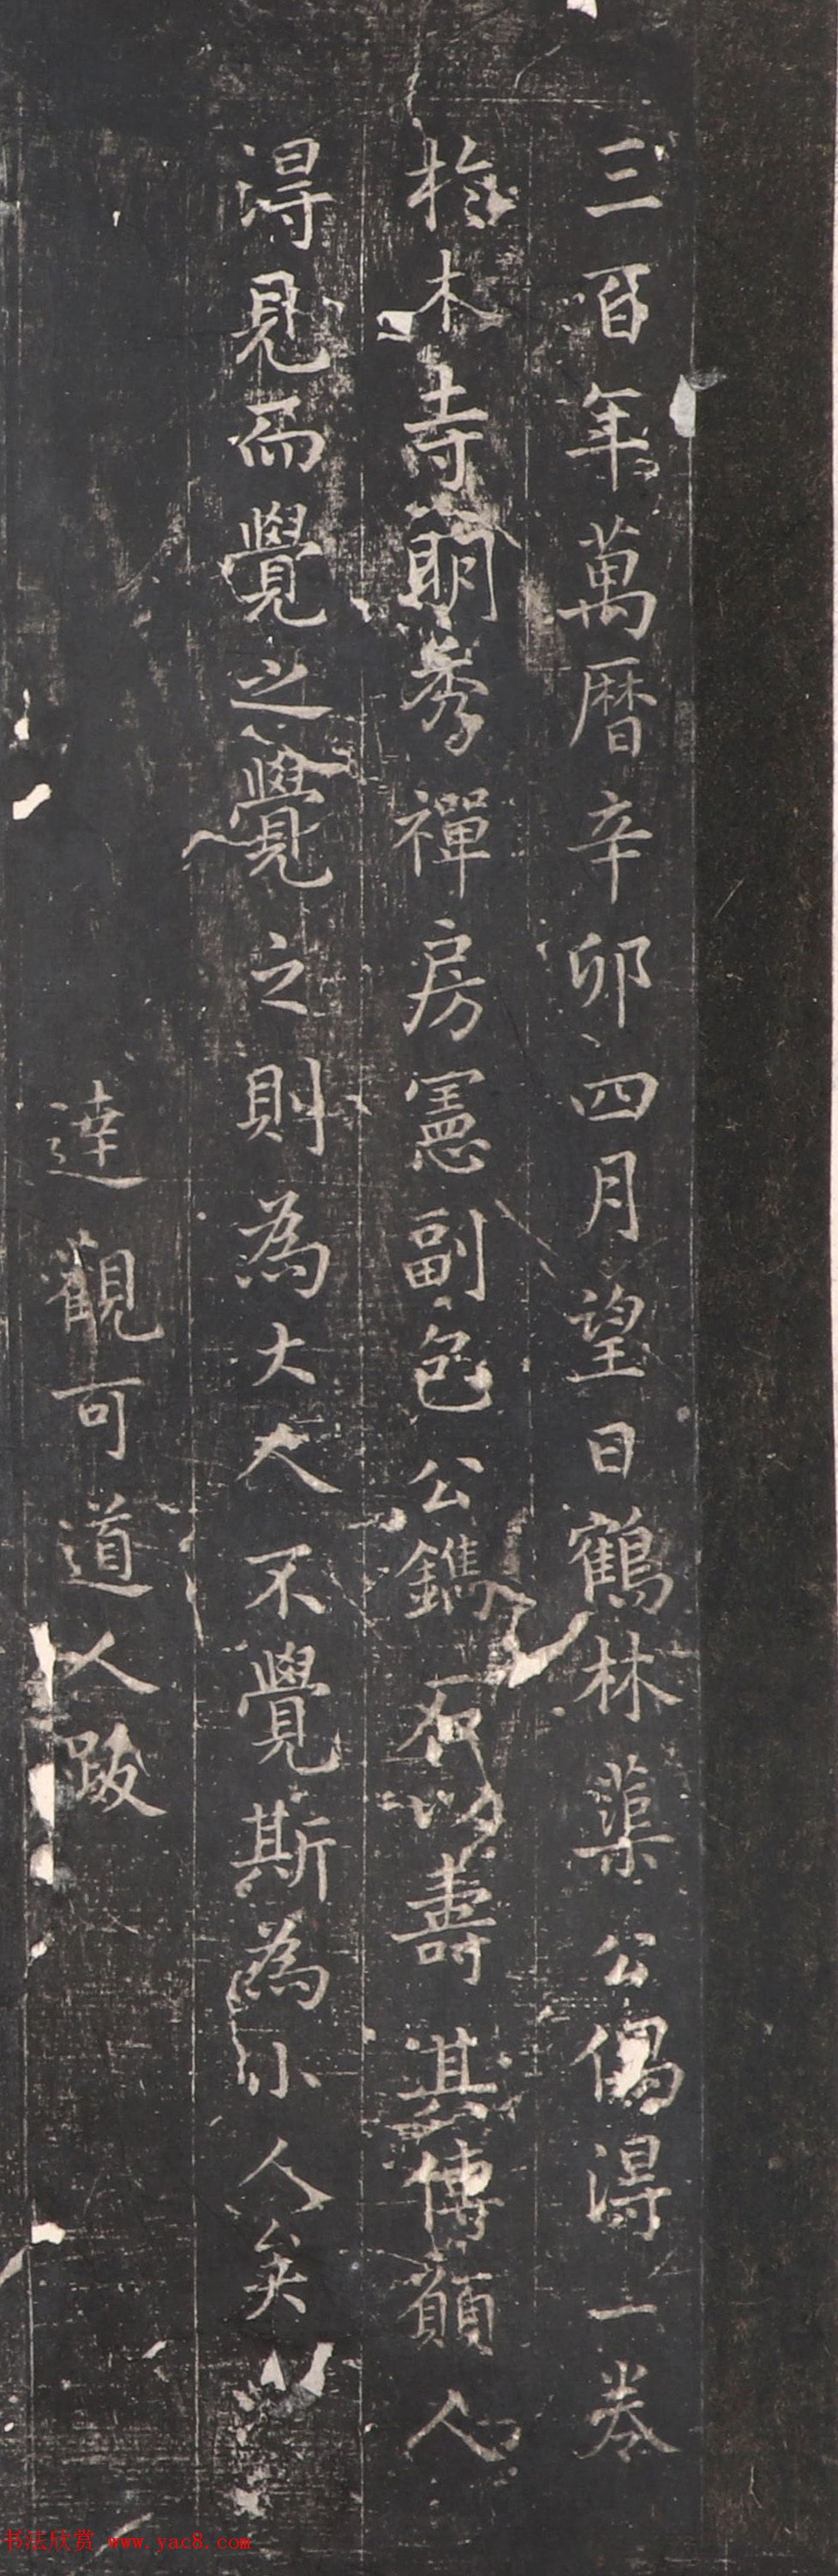 三百年萬曆辛卯四月望日鶴林蕖公偶淂一卷
於木寺朙秀禪房憲副包公鐫石以壽其傳願人
淂見而覺之覺之則為大人不覺斯為小人矣
達觀可道人跋
书法欣赏 www.yac8.com